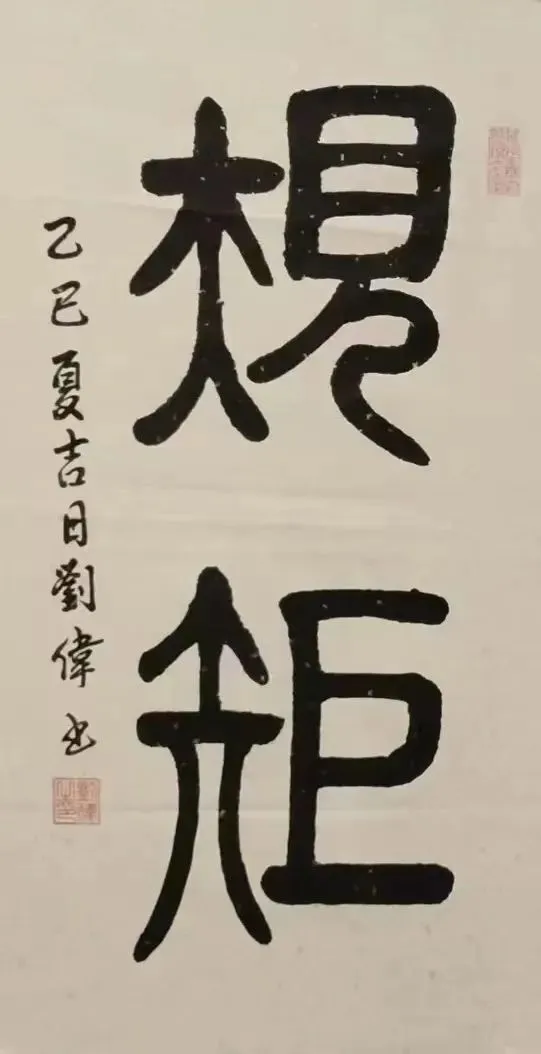 規矩
乙巳夏吉日劉偉书